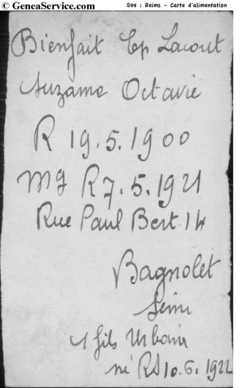 © GeneaService.com
D44 : Reims - Carte d'alimentation
Bienfait Ep Lacout
Suzanne Octavie
R 19.5.1900
Mg R 7.5.1921
Rue Paul Bert 14
Bagnolet
Seine
1 fils Urbain
né RS 10.6.1922